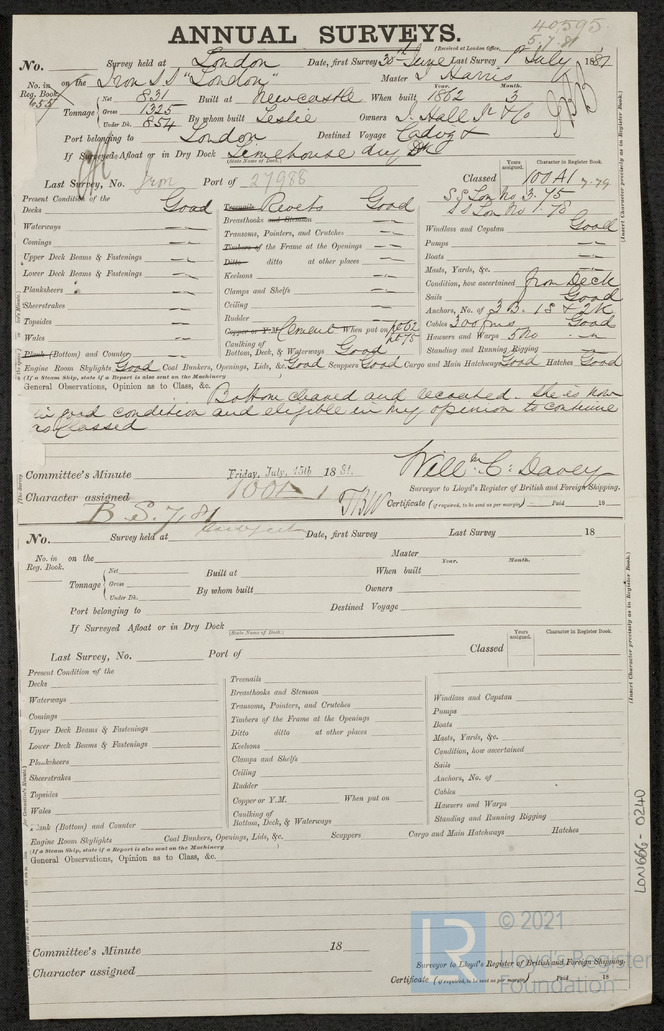 ANNUAL SURVEYS.
40595
5.7.81
(Received at London Office,
No. Survey held at London Date, first Survey 30th June Last Survey 1st July 1881
No. in Reg. Book. 655 on the Iron S.S "London" Master J Harris
Tonnage Net 831 Built at Newcastle When built Year. 1862 Month. 3
Gross 1325 By whom built Leslie Owners J. Hall Jr & Co
Under Dk. 854
Port belonging to London Destined Voyage Cadiz &
If Surveyed Afloat or in Dry Dock Limehouse dry Dk
(State Name of Dock.)
Last Survey, No. Iron Port of 27988 Classed Years assigned. Character in Register Book. 100 A1 7.79
SS Lon No 3. 75
SS Lon No 1. 78
(Insert Character precisely as in Register Book.)
Present Condition of the
Decks Good
Waterways "
Comings "
Upper Deck Beams & Fastenings "
Lower Deck Beams & Fastenings "
Planksheers "
Sheerstrakes "
Topsides "
Wales "
Plank (Bottom) and Counter
Treenails Rivets Good
Breasthooks and Stemson "
Transoms, Pointers, and Crutches "
Timbers of the Frame at the Openings "
Ditto ditto at other places "
Keelsons "
Clamps and Shelfs "
Ceiling "
Rudder "
Copper or Y.M. Cement When put on
Caulking of
Bottom, Deck, & Waterways Good
Windlass and Capstan Good
Pumps "
Boats "
Masts, Yards, &c. "
Condition, how ascertained from Deck
Sails Good
Anchors, No. of 3 B. 1 S & 2 K
Cables 300 fms Good
Hawsers and Warps 5 No "
Standing and Running Rigging "
Engine Room Skylights Good Coal Bunkers, Openings, Lids, &c. Good Scuppers Good Cargo and Main Hatchways Good Hatches Good
(If a Steam Ship, state if a Report is also sent on the Machinery)
General Observations, Opinion as to Class, &c. Bottom cleaned and recoated. She is now
in good condition and eligible in my opinion to continue
as Classed
Committee's Minute Friday, July, 15th 1881.
Will m C: Davey
Surveyor to Lloyd's Register of British and Foreign Shipping.
Character assigned 100A1
Certificate (if required, to be sent as per margin) Paid 18
B.S. 7,81
No. Survey held at Date, first Survey Last Survey 18
No. in Reg. Book. on the Master
Tonnage Net Built at When built Year. Month.
Gross By whom built Owners
Under Dk.
Port belonging to Destined Voyage
If Surveyed Afloat or in Dry Dock
(State Name of Dock.)
Last Survey, No. Port of Classed Years assigned. Character in Register Book.
(Insert Character precisely as in Register Book.)
Present Condition of the
Decks
Waterways
Comings
Upper Deck Beams & Fastenings
Lower Deck Beams & Fastenings
Planksheers
Sheerstrakes
Topsides
Wales
Plank (Bottom) and Counter
Treenails
Breasthooks and Stemson
Transoms, Pointers, and Crutches
Timbers of the Frame at the Openings
Ditto ditto at other places
Keelsons
Clamps and Shelfs
Ceiling
Rudder
Copper or Y.M. When put on
Caulking of
Bottom, Deck, & Waterways
Windlass and Capstan
Pumps
Boats
Masts, Yards, &c.
Condition, how ascertained
Sails
Anchors, No. of
Cables
Hawsers and Warps
Standing and Running Rigging
Engine Room Skylights Coal Bunkers, Openings, Lids, &c. Scuppers Cargo and Main Hatchways Hatches
(If a Steam Ship, state if a Report is also sent on the Machinery)
General Observations, Opinion as to Class, &c.
LON666-0240
Committee's Minute 18
Character assigned
Surveyor to Lloyd's Register of British and Foreign Shipping.
Certificate (if required, to be sent as per margin) Paid 18
LR
© 2021
Lloyd's Register
Foundation